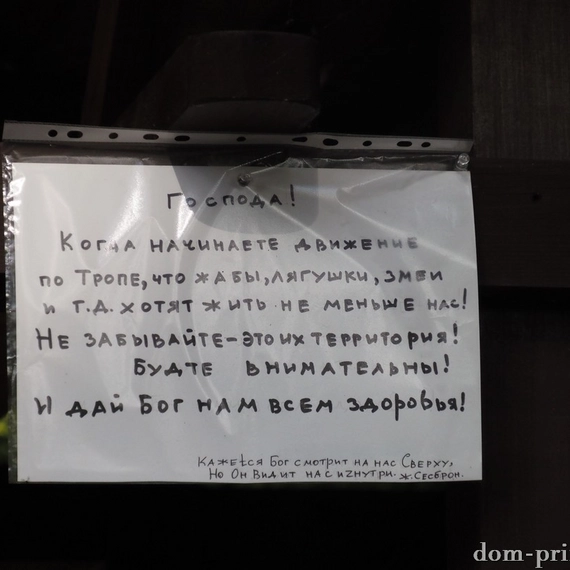 Господа!
Когда начинаете движение
по Тропе, что жабы, лягушки, змеи
и т.д. хотят жить не меньше нас!
Не забывайте - это их территория!
Будте внимательны!
И дай Бог нам всем здоровья!
Кажется Бог смотрит на нас Сверху,
Но Он Видит нас изнутри. Ж. Сесброн.
dom-pri